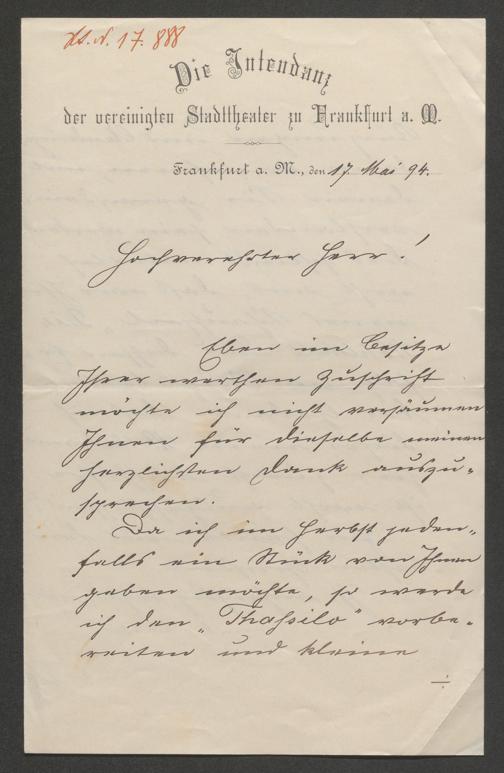 17. 888
Die Intendanz
der vereinigten Stadttheater zu Frankfurt a. M.
Frankfurt a. M., den 17. Mai 94.
Hochverehrter Herr!
Eben im Besitze
Ihrer werthen Zuschrift
möchte ich nicht versäumen
Ihnen für dieselbe meinen
herzlichsten Dank auszu-
sprechen.
Da ich im Herbst jeden-
falls ein Stück von Ihnen
geben möchte, so werde
ich den „Thassilo" vorbe-
reiten und kleine